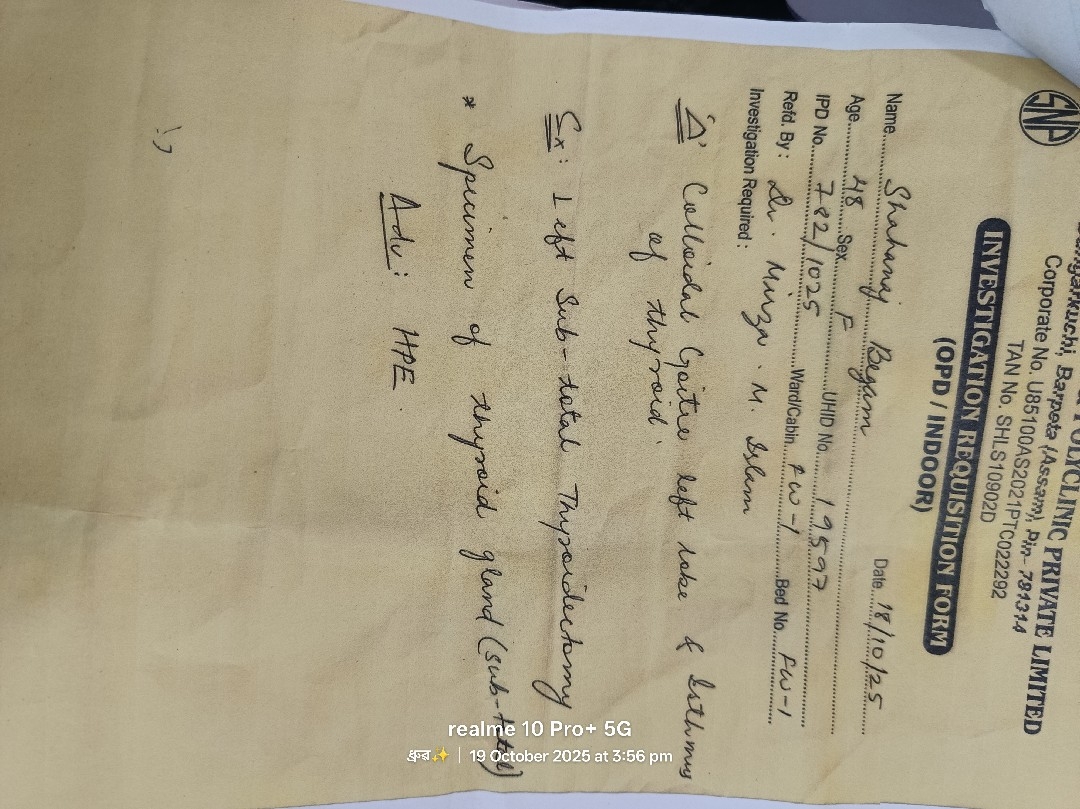 SNP
POLYCLINIC PRIVATE LIMITED
Barpeta (Assam), Pin- 781314
Corporate No. U85100AS2021PTC022292
TAN No. SHLS10902D
INVESTIGATION REQUISITION FORM
(OPD / INDOOR)
Name Shahanaj Begam Date 18/10/25
Age 48 Sex F UHID No. 19597
IPD No. 782/1025 Ward/Cabin FW-1 Bed No. FW-1
Refd. By : Dr. Mirza. M. Islam
Investigation Required :
Δ Colloidal Goitre left lobe & Isthmus
of thyroid.
Sx: Left Sub-total Thyroidectomy
* Specimen of thyroid gland (sub-total)
Adv: HPE.
realme 10 Pro+ 5G
ধ্রুৱ✨ | 19 October 2025 at 3:56 pm